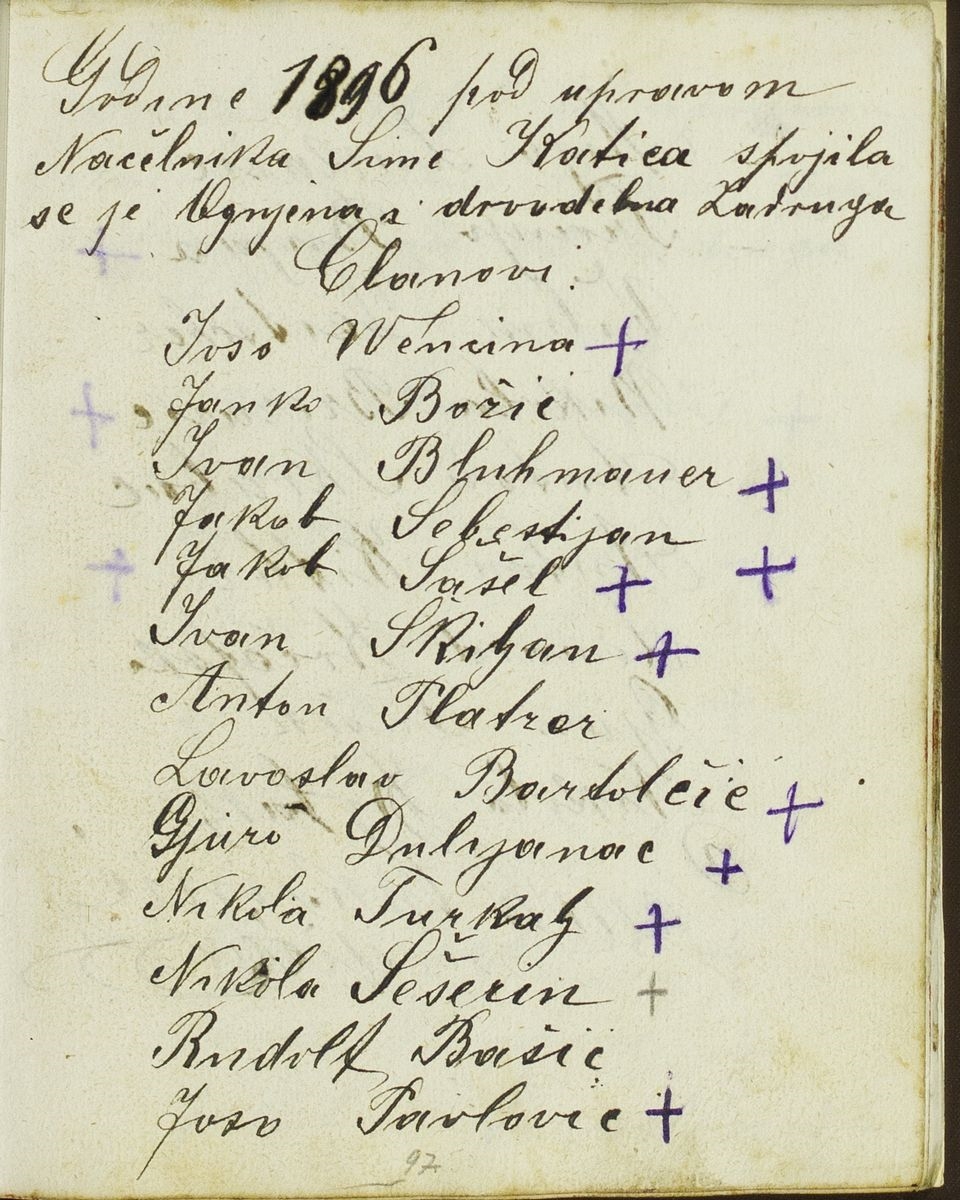 Godine 1896 pod upravom
Načelnika Sime Katića spojila
se je Ognjena i drvodelna Zadruga
Članovi:
Joso Wencina +
Janko Božić
Ivan Bluhmauer +
Jakob Sebestijan +
Jakob Šašel +
Ivan Skiljan +
Anton Platzer
Lavoslav Bartolčić +
Gjuro Dulijanac +
Nikola Turkalj +
Nikola Šešerin +
Rudolf Bašić
Joso Pavlović +
97